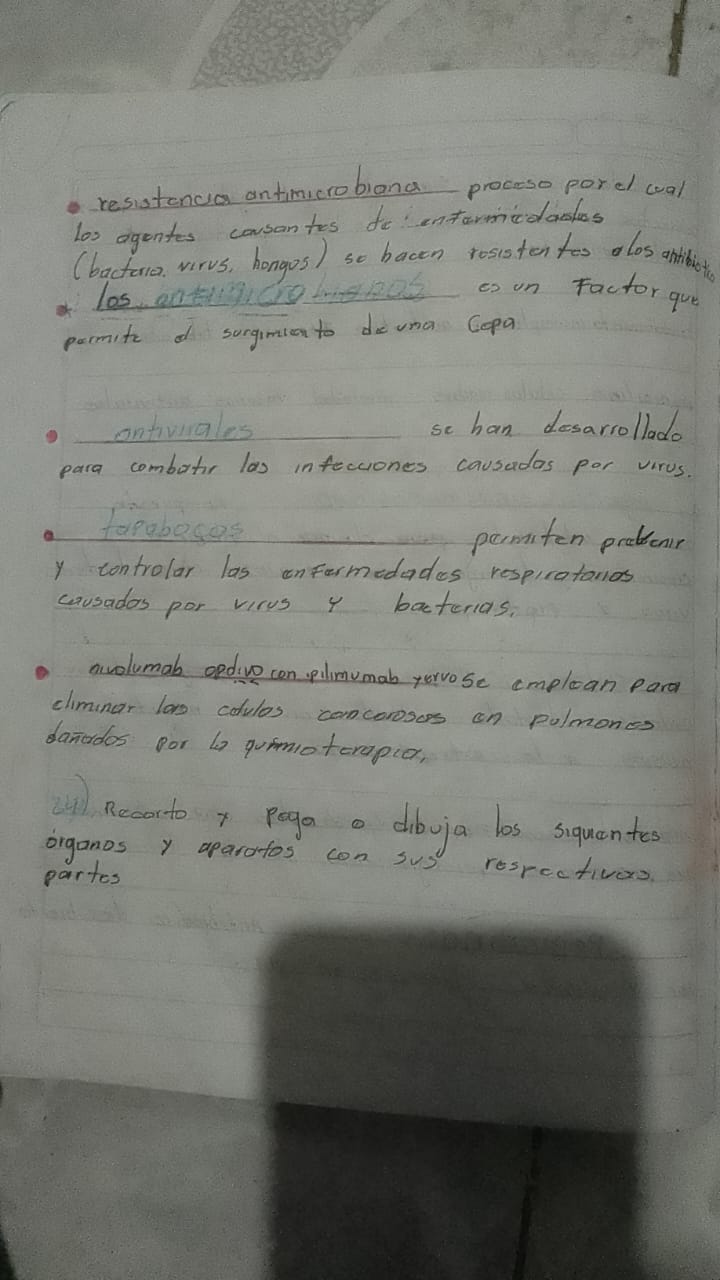 resistencia antimicrobiana proceso por el cual
los agentes causantes de enfermedades
(bacteria, virus, hongos) se hacen resistentes a los antibiotico
los antimicrobianos es un Factor que
permite el surgimiento de una Cepa
antivirales se han desarrollado
para combatir las infecciones causadas por virus.
tapabocas permiten prebenir
y controlar las enfermedades respiratorias
causados por virus y bacterias.
nivolumab opdivo con ipilimumab yervo se emplean para
eliminar las celulas cancerosas en pulmones
dañados por la quimioterapia.
24) Recorto y pega o dibuja los siguientes
órganos y aparatos con sus respectivas
partes